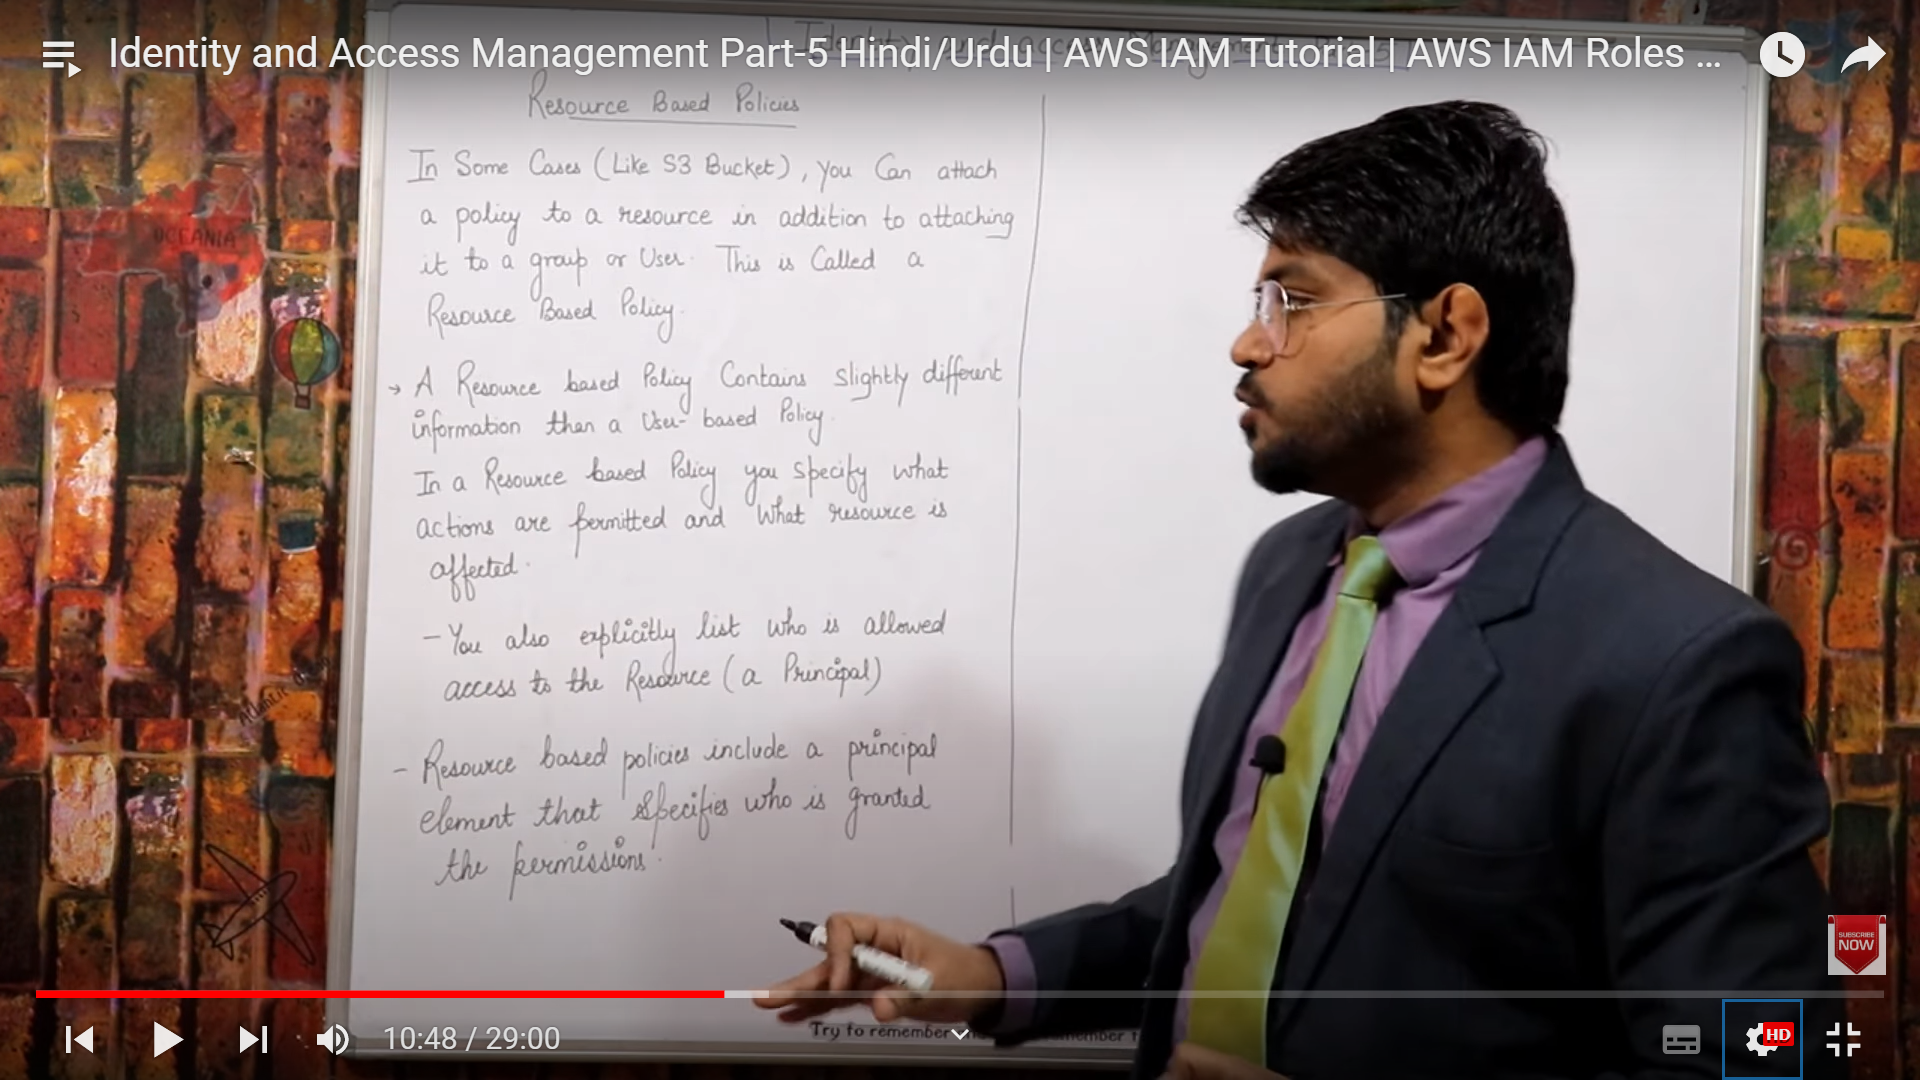 Identity and Access Management Part-5 Hindi/Urdu | AWS IAM Tutorial | AWS IAM Roles ...
Resource Based Policies
In Some Cases (Like S3 Bucket), you Can attach
a policy to a resource in addition to attaching
it to a group or User. This is Called a
Resource Based Policy.
→ A Resource based Policy Contains slightly different
information then a User-based Policy.
In a Resource based Policy you specify what
actions are permitted and What resource is
affected.
- You also explicitly list who is allowed
access to the Resource (a Principal)
- Resource based policies include a principal
element that specifies who is granted
the permissions.
OCEANIA
Atlantic
SUBSCRIBE
NOW
Try to remember
10:48 / 29:00
HD